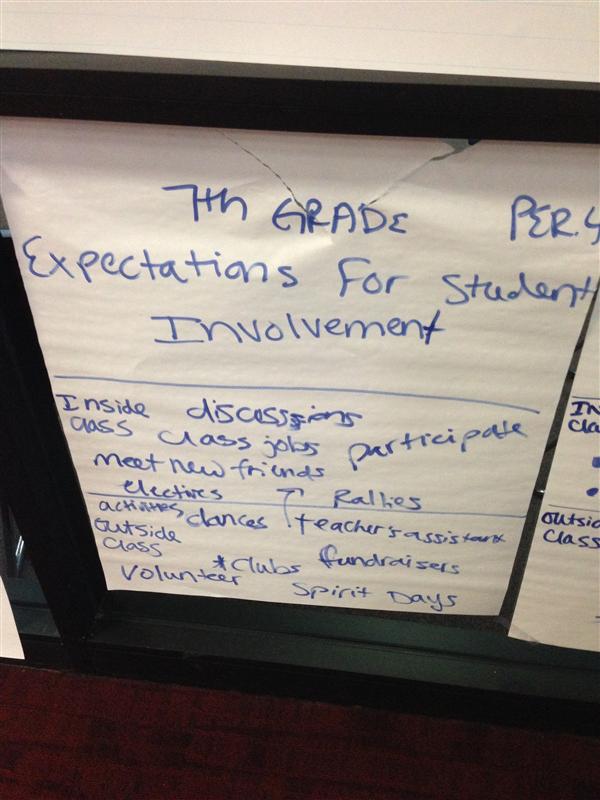 7th GRADE PER. 4
Expectations For Student
Involvement
Inside discussions
class class jobs participate
meet new friends
electives Rallies
activities, dances teacher's assistant
outside
class *clubs fundraisers
volunteer Spirit Days
IN
Cla
outsid
Class